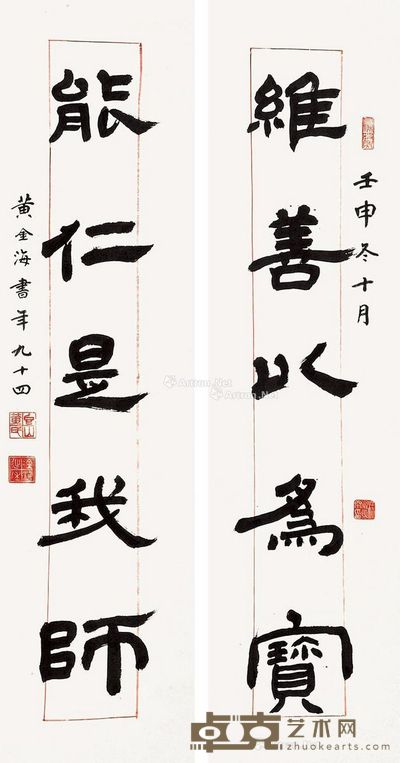 維善以為寶
壬申冬十月
能仁是我師
黃金海書年九十四
Artron.Net
卓克艺术网
zhuokearts.com